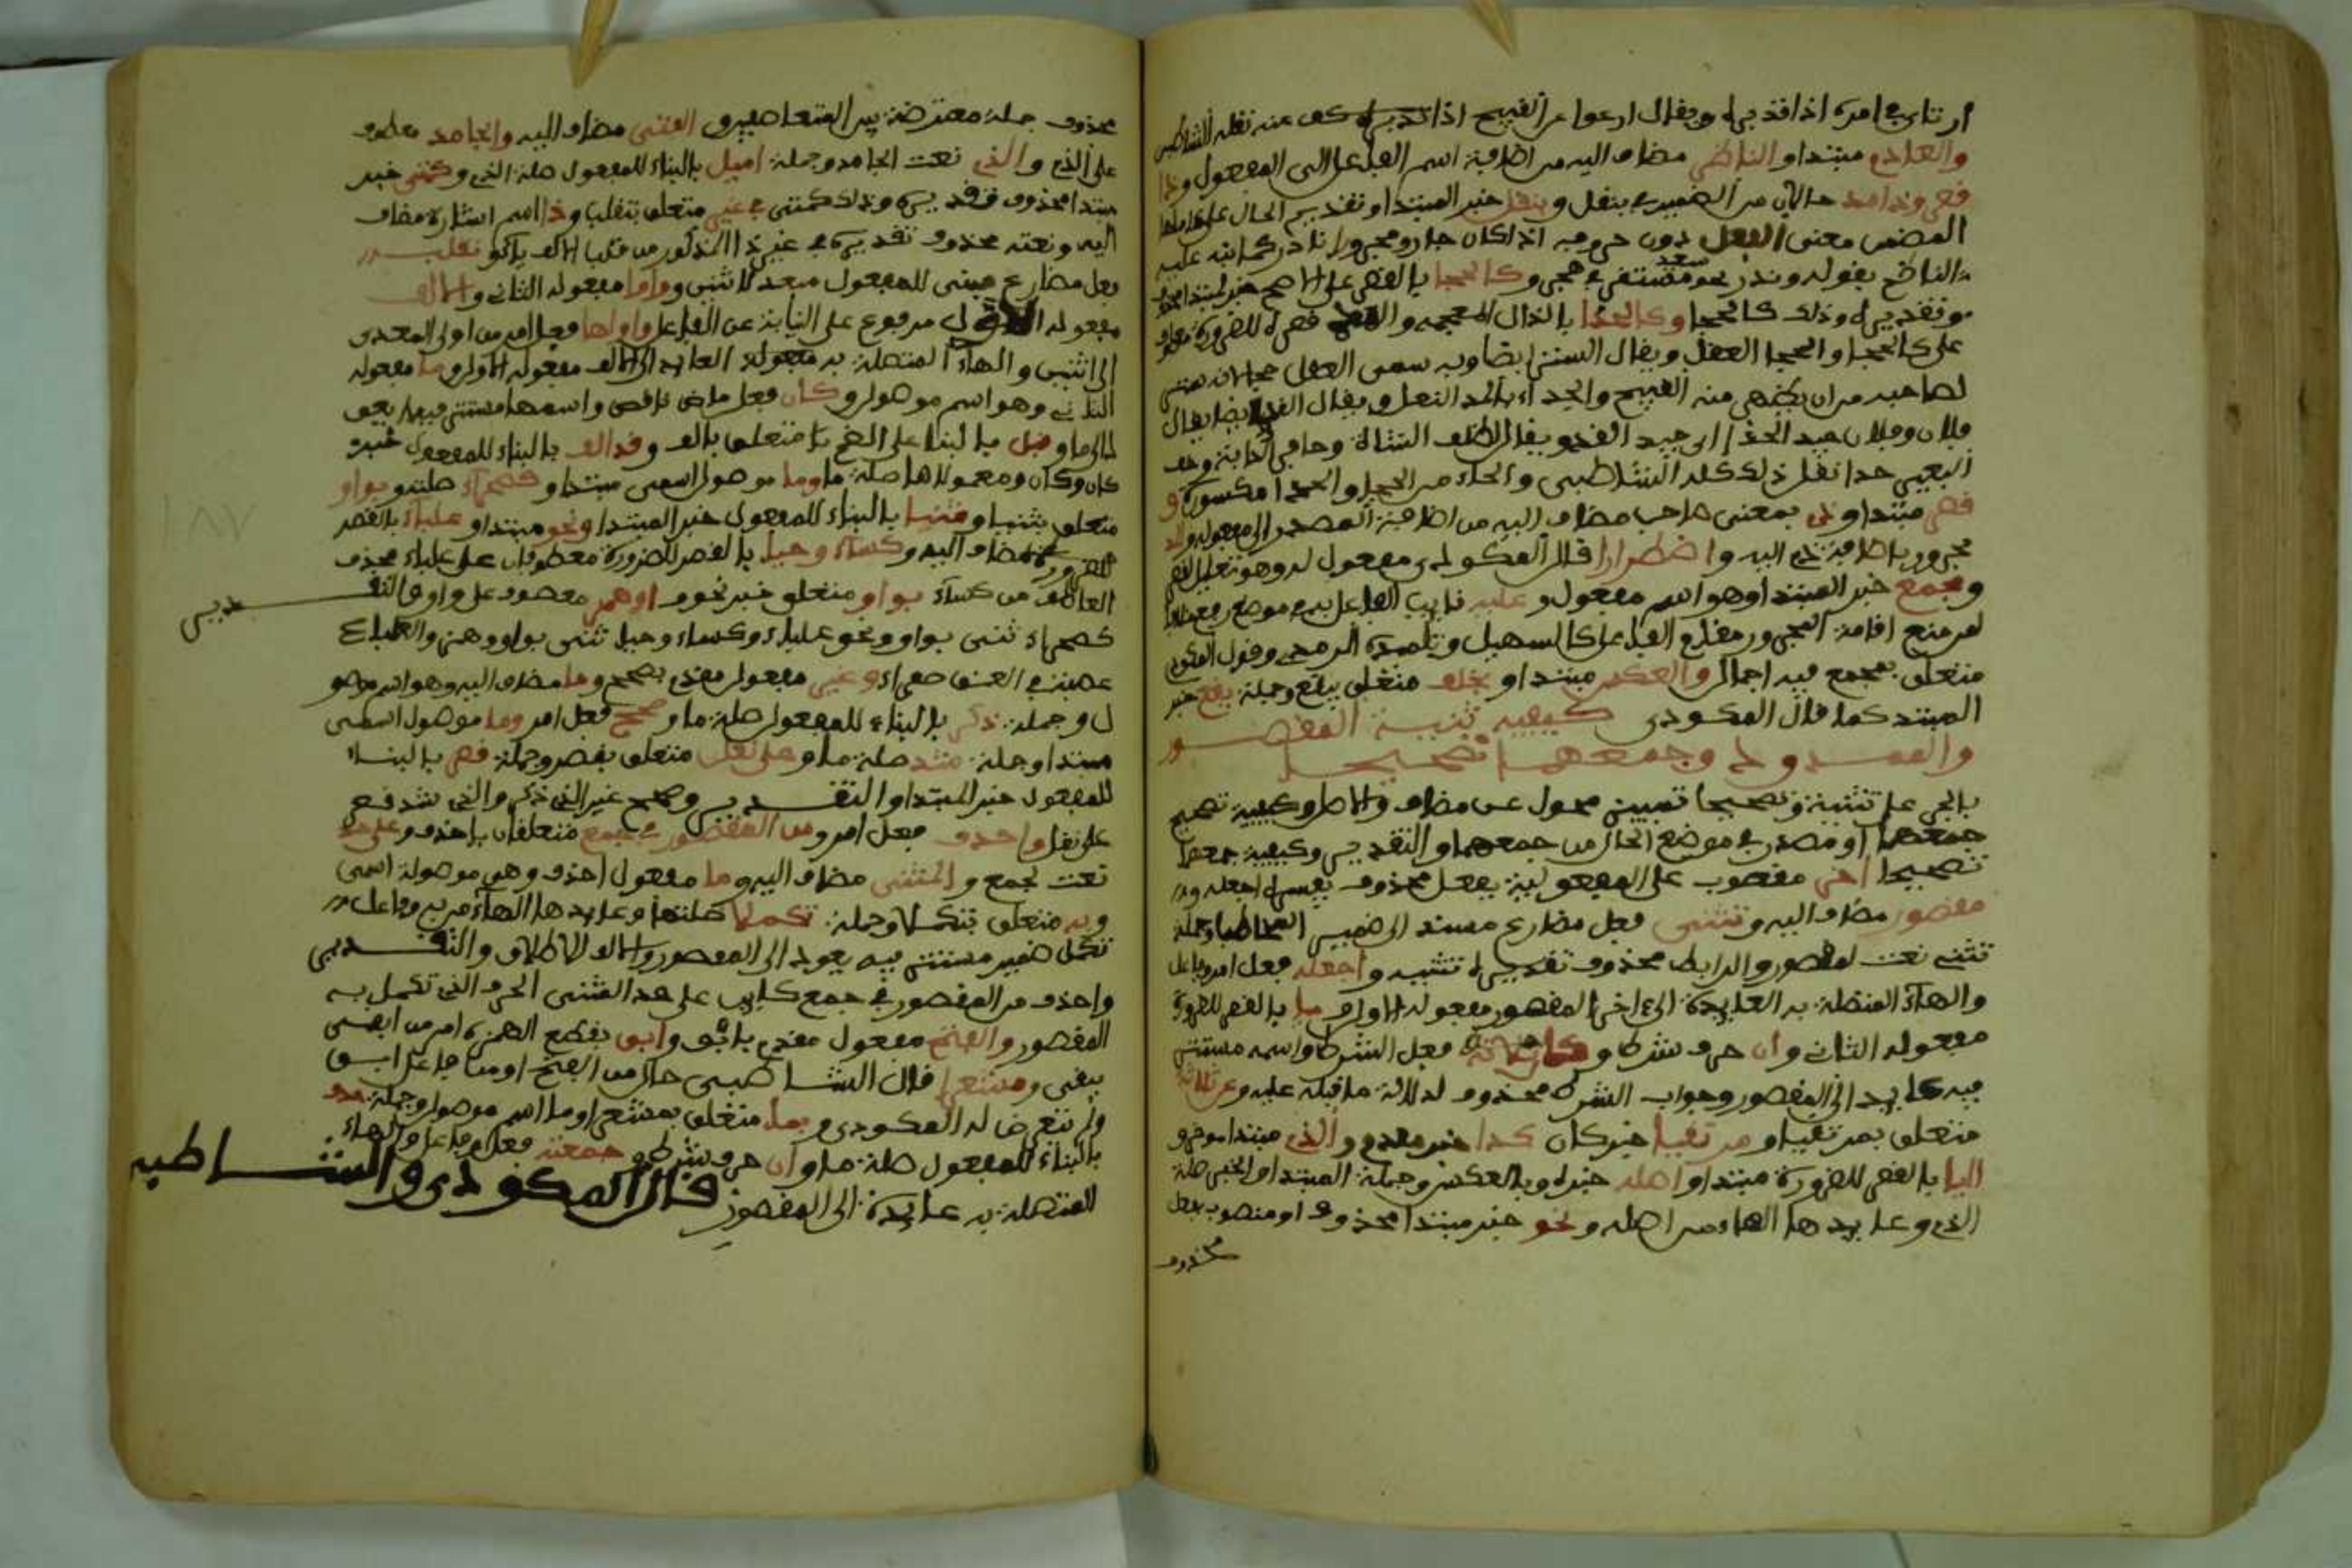 والعادم مبتدا والناظر مضاف اليه من اضافة اسم الفاعل الى المفعول وذا
المضمن معنى الفعل دون حروفه اذا كان جار ومجرورا نادر كما نبه عليه
الناظم بقوله وندر نحو سعيد مستقر في هجر وكالحجا بالقصر على الاصح خبر لمبتدا محذوف
وتقديره وذلك كالحجا وكالحذا بالذال المعجمة والقصر للضرورة معطوف
على كالحجا والحجا العقل ويقال الستر ايضا وبه سمى العقل حجا لانه ستر
لصاحبه من ان يظهر منه القبيح والحذاء بالمد النعل ويقال القد ايضا يقال
فلان وفلان جيد الحذا اي جيد القد ويقال لظلف الشاة وحافر الدابة وخف
البعير حذا نقل ذلك كله الشاطبي والحاء من الحجا والحذا مكسورة و
قصر مبتدا وذي بمعنى صاحب مضاف اليه من اضافة المصدر الى مفعوله والمد
مجرور باضافة ذي اليه واضطرارا قال المكودي مفعول له وهو تعليل لقصر
ومجمع خبر المبتدا وهو اسم مفعول وعليه نايب الفاعل به في موضع رفع خلافا
لمن منع اقامة المجرور مقام الفاعل كالسهيلي وتلميذه الرمحي وقول المكودي
متعلق بمجمع فيه اجمال والعكس مبتدا وبخلف متعلق بيقع وجملة يقع خبر
المبتدا كما قال المكودي كيفية تثنية المقصور
والممدود وجمعهما تصحيحا
بالجر على تثنية وتصحيحا تمييز محول عن مضاف والاصل وكيفية تصحيح
جمعهما او مصدر في موضع الحال من جمعهما والتقدير وكيفية جمعهما
تصحيحا اخر منصوب على المفعولية بفعل محذوف يفسره اجعله
مقصور مضاف اليه وتثنى فعل مضارع مسند الى ضمير المخاطب وجملة
تثنى نعت لمقصور والرابط محذوف تقديره تثنيه واجعله فعل امر وفاعل
والهاء المتصلة به العايدة الى اخر المقصور مفعوله الاول ويا بالقصر للضرورة
مفعوله الثاني وان حرف شرط وكان فعل الشرط واسمه مستتر
فيه عايد الى المقصور وجواب الشرط محذوف لدلالة ما قبله عليه وعن ثلاثة
متعلق بمرتقيا ومرتقيا خبر كان كذا خبر مقدم والذي مبتدا موخر و
اليا بالقصر للضرورة مبتدا واصله خبره وبالعكس وجملة المبتدا والخبر صلة
الذي وعايدها الهاء من اصله ونحو خبر مبتدا محذوف او منصوب بفعل
محذوف
محذوف جملة معترضة بين المتعاطفين و الفتى مضاف اليه والجامد معطوف
على الذي والذي نعت الجامد وجملة اميل بالبناء للمفعول صلة الذي وكمتى خبر
مبتدا محذوف تقديره وذلك كمتى في غير متعلق بتقلب وذا اسم اشارة مضاف
اليه ونعته محذوف تقديره في غير ذا المذكور من قلب الالف ياء وتقلب
فعل مضارع مبني للمفعول متعد لاثنين وواوا مفعوله الثاني والالف
مفعوله الاول مرفوع على النيابة عن الفاعل واولها فعل امر من اولى المعدى
الى اثنين والهاء المتصلة به العايد الى الالف مفعوله الاول وما مفعوله
الثاني وهو اسم موصول وكان فعل ماض ناقص واسمها مستتر فيها يعود
الى ما وقبل بالبناء على الضم متعلق بالف وقد الف بالبناء للمفعول خبر
كان وكان ومعمولاها صلة ما وما موصول اسمي مبتدا وكصحراء صلته وبواو
متعلق بثنيا وثنيا بالبناء للمفعول خبر المبتدا ونحو مبتدا وعلباء بالقصر
للضرورة مضاف اليه وكساء وحيا بالقصر للضرورة معطوفان على علباء بحذف
العاطف من كساء بواو متعلق خبر نحو او همز معطوف على واو والتقدير
كصحراء ثنى بواو ونحو علباء وكساء وحيا ثنى بواو وهمز والعلباء
عصبة في العنق صفراء وغير مفعول مقدم بصحح وما مضاف اليه وهو اسم موصو
ل وجملة ذكر بالبناء للمفعول صلة ما وصحح فعل امر وما موصول اسمي
مبتدا وجملة شذ صلة ما وعلى نقل متعلق بقصر وجملة قصر بالبناء
للمفعول خبر المبتدا والتقدير وصحح غير الذي ذكر والذي شذ قصر
على نقل واحذف فعل امر ومن المقصور في جمع متعلقان باحذف وعلى حد
نعت لجمع والمثنى مضاف اليه وما مفعول احذف وهي موصولة اسمي
وبه متعلق بتكملا وجملة تكملا صلتها وعايدها الهاء من به وفاعل
تكمل ضمير مستتر فيه يعود الى المقصور والالف للاطلاق والتقدير
واحذف من المقصور في جمع كاين على حد المثنى الحرف الذي تكمل به
المقصور والفتح مفعول مقدم بابق وابق بقطع الهمزة امر من ابقى
يبقي ومشعرا قال الشاطبي حال من الفتح او من فاعل ابق
ولم يتعرض له المكودي وبما متعلق بمشعرا وما اسم موصول وجملة حذف
بالبناء للمفعول صلة ما وان حرف شرط وجمعته فعل وفاعل والهاء
المتصلة به عايدة الى المقصور قال المكودي والشاطبي